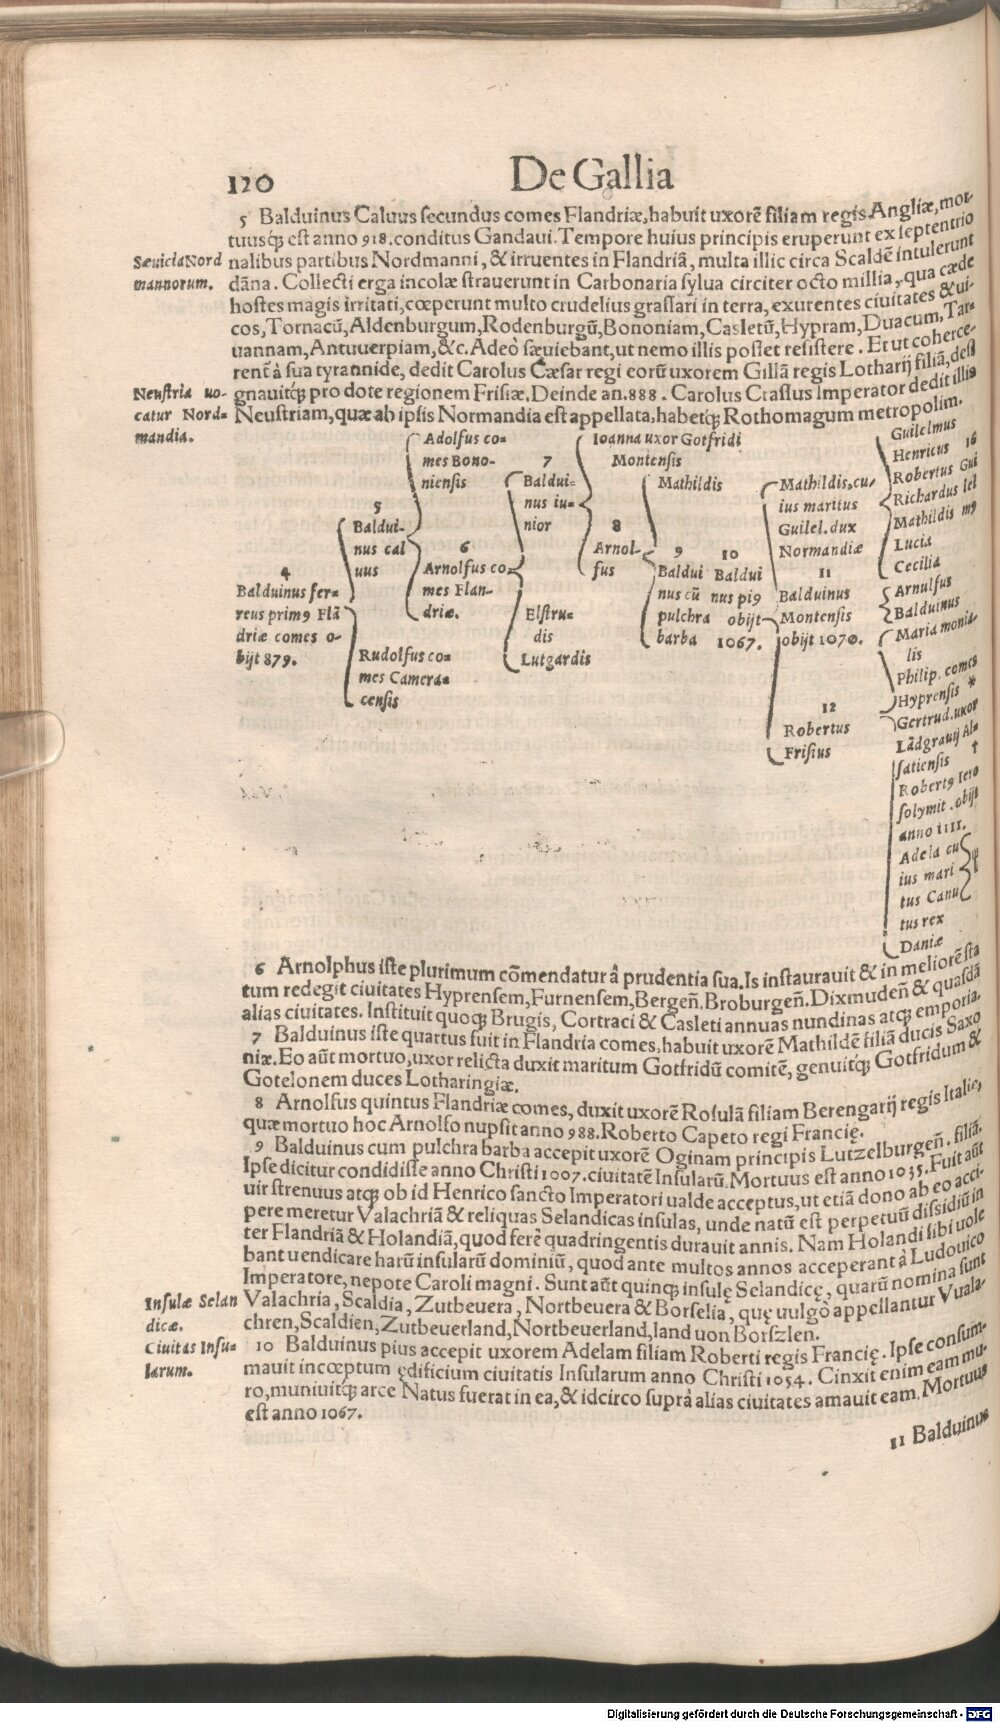 120
De Gallia
5 Balduinus Caluus secundus comes Flandriæ, habuit uxorẽ filiam regis Angliæ, mor-
tuusq́; est anno 918. conditus Gandaui. Tempore huius principis eruperunt ex septentrio
nalibus partibus Nordmanni, & irruentes in Flandriã, multa illic circa Scaldẽ intulerunt
dãna. Collecti erga incolæ strauerunt in Carbonaria sylua circiter octo millia, qua cæde
hostes magis irritati, cœperunt multo crudelius grassari in terra, exurentes ciuitates & ui-
cos, Tornacũ, Aldenburgum, Rodenburgũ, Bononiam, Casletũ, Hypram, Duacum, Tar-
uannam, Antuuerpiam, &c. Adeò sæuiebant, ut nemo illis posset resistere. Et ut coherce-
rent̃ à sua tyrannide, dedit Carolus Cæsar regi eorũ uxorem Gillã regis Lotharij filiã, desi
gnauitq́; pro dote regionem Frisiæ. Deinde an. 888. Carolus Crassus Imperator dedit illis
Neustriam, quæ ab ipsis Normandia est appellata, habetq́; Rothomagum metropolim.
Sæuicia Nord
mannorum.
Neustria uo-
catur Nord-
mandia.
4
Balduinus fer-
reus prim9 Flã
driæ comes o-
bijt 879.
5
Baldui-
nus cal
uus
Rudolfus co-
mes Camera-
censis
Adolfus co-
mes Bono-
niensis
6
Arnolfus co-
mes Flan-
driæ.
7
Baldui-
nus iu-
nior
Elstru-
dis
Lutgardis
Ioanna uxor Gotfridi
Montensis
8
Arnol-
fus
Mathildis
9
Baldui
nus cũ
pulchra
barba
10
Baldui
nus pi9
obijt
1067.
Mathildis, cu-
ius maritus
Guilel. dux
Normandiæ
11
Balduinus
Montensis
obijt 1070.
12
Robertus
Frisius
Guilelmus
Henricus 16
Robertus Gui
Richardus lel
Mathildis m9
Lucia
Cecilia
Arnulfus
Balduinus
Maria monia-
lis
Philip. comes
Hyprensis *
Gertrud. uxor
Lãdgrauij Al-
satiensis †
Robert9 Iero
solymit. obijt
anno 1111.
Adela cu
ius mari
tus Canu
tus rex
Daniæ
6 Arnolphus iste plurimum cõmendatur â prudentia sua. Is instaurauit & in meliorẽ sta
tum redegit ciuitates Hyprensem, Furnensem, Bergeñ. Broburgeñ. Dixmudeñ & quasdã
alias ciuitates. Instituit quoq́; Brugis, Cortraci & Casleti annuas nundinas atq́; emporia.
7 Balduinus iste quartus fuit in Flandria comes, habuit uxorẽ Mathildẽ filiã ducis Saxo
niæ. Eo aũt mortuo, uxor relicta duxit maritum Gotfridũ comitẽ, genuitq́; Gotfridum &
Gotelonem duces Lotharingiæ.
8 Arnolfus quintus Flandriæ comes, duxit uxorẽ Rosulã filiam Berengarij regis Italię,
quæ mortuo hoc Arnolfo nupsit anno 988. Roberto Capeto regi Francię.
9 Balduinus cum pulchra barba accepit uxorẽ Oginam principis Lutzelburgeñ. filiã.
Ipse dicitur condidisse anno Christi 1007. ciuitatẽ Insularũ. Mortuus est anno 1035. Fuit aũt
uir strenuus atq́; ob id Henrico sancto Imperatori ualde acceptus, ut etiã dono ab eo acci-
pere meretur Valachriã & reliquas Selandicas insulas, unde natũ est perpetuũ dissidiũ in
ter Flandriã & Holandiã, quod ferè quadringentis durauit annis. Nam Holandi sibi uole
bant uendicare harũ insularũ dominiũ, quod ante multos annos acceperant à Ludouico
Imperatore, nepote Caroli magni. Sunt aũt quinq́; insulę Selandicę, quarũ nomina sunt
Valachria, Scaldia, Zutbeuera, Nortbeuera & Borselia, quę uulgò appellantur Vuala-
chren, Scaldien, Zutbeuerland, Nortbeuerland, land uon Borszlen.
Insulæ Selan
dicæ.
10 Balduinus pius accepit uxorem Adelam filiam Roberti regis Francię. Ipse consum-
mauit incœptum ędificium ciuitatis Insularum anno Christi 1054. Cinxit enim eam mu-
ro, muniuitq́; arce Natus fuerat in ea, & idcirco suprà alias ciuitates amauit eam. Mortuus
est anno 1067.
Ciuitas Insu-
larum.
11 Balduinus
Digitalisierung gefördert durch die Deutsche Forschungsgemeinschaft - DFG